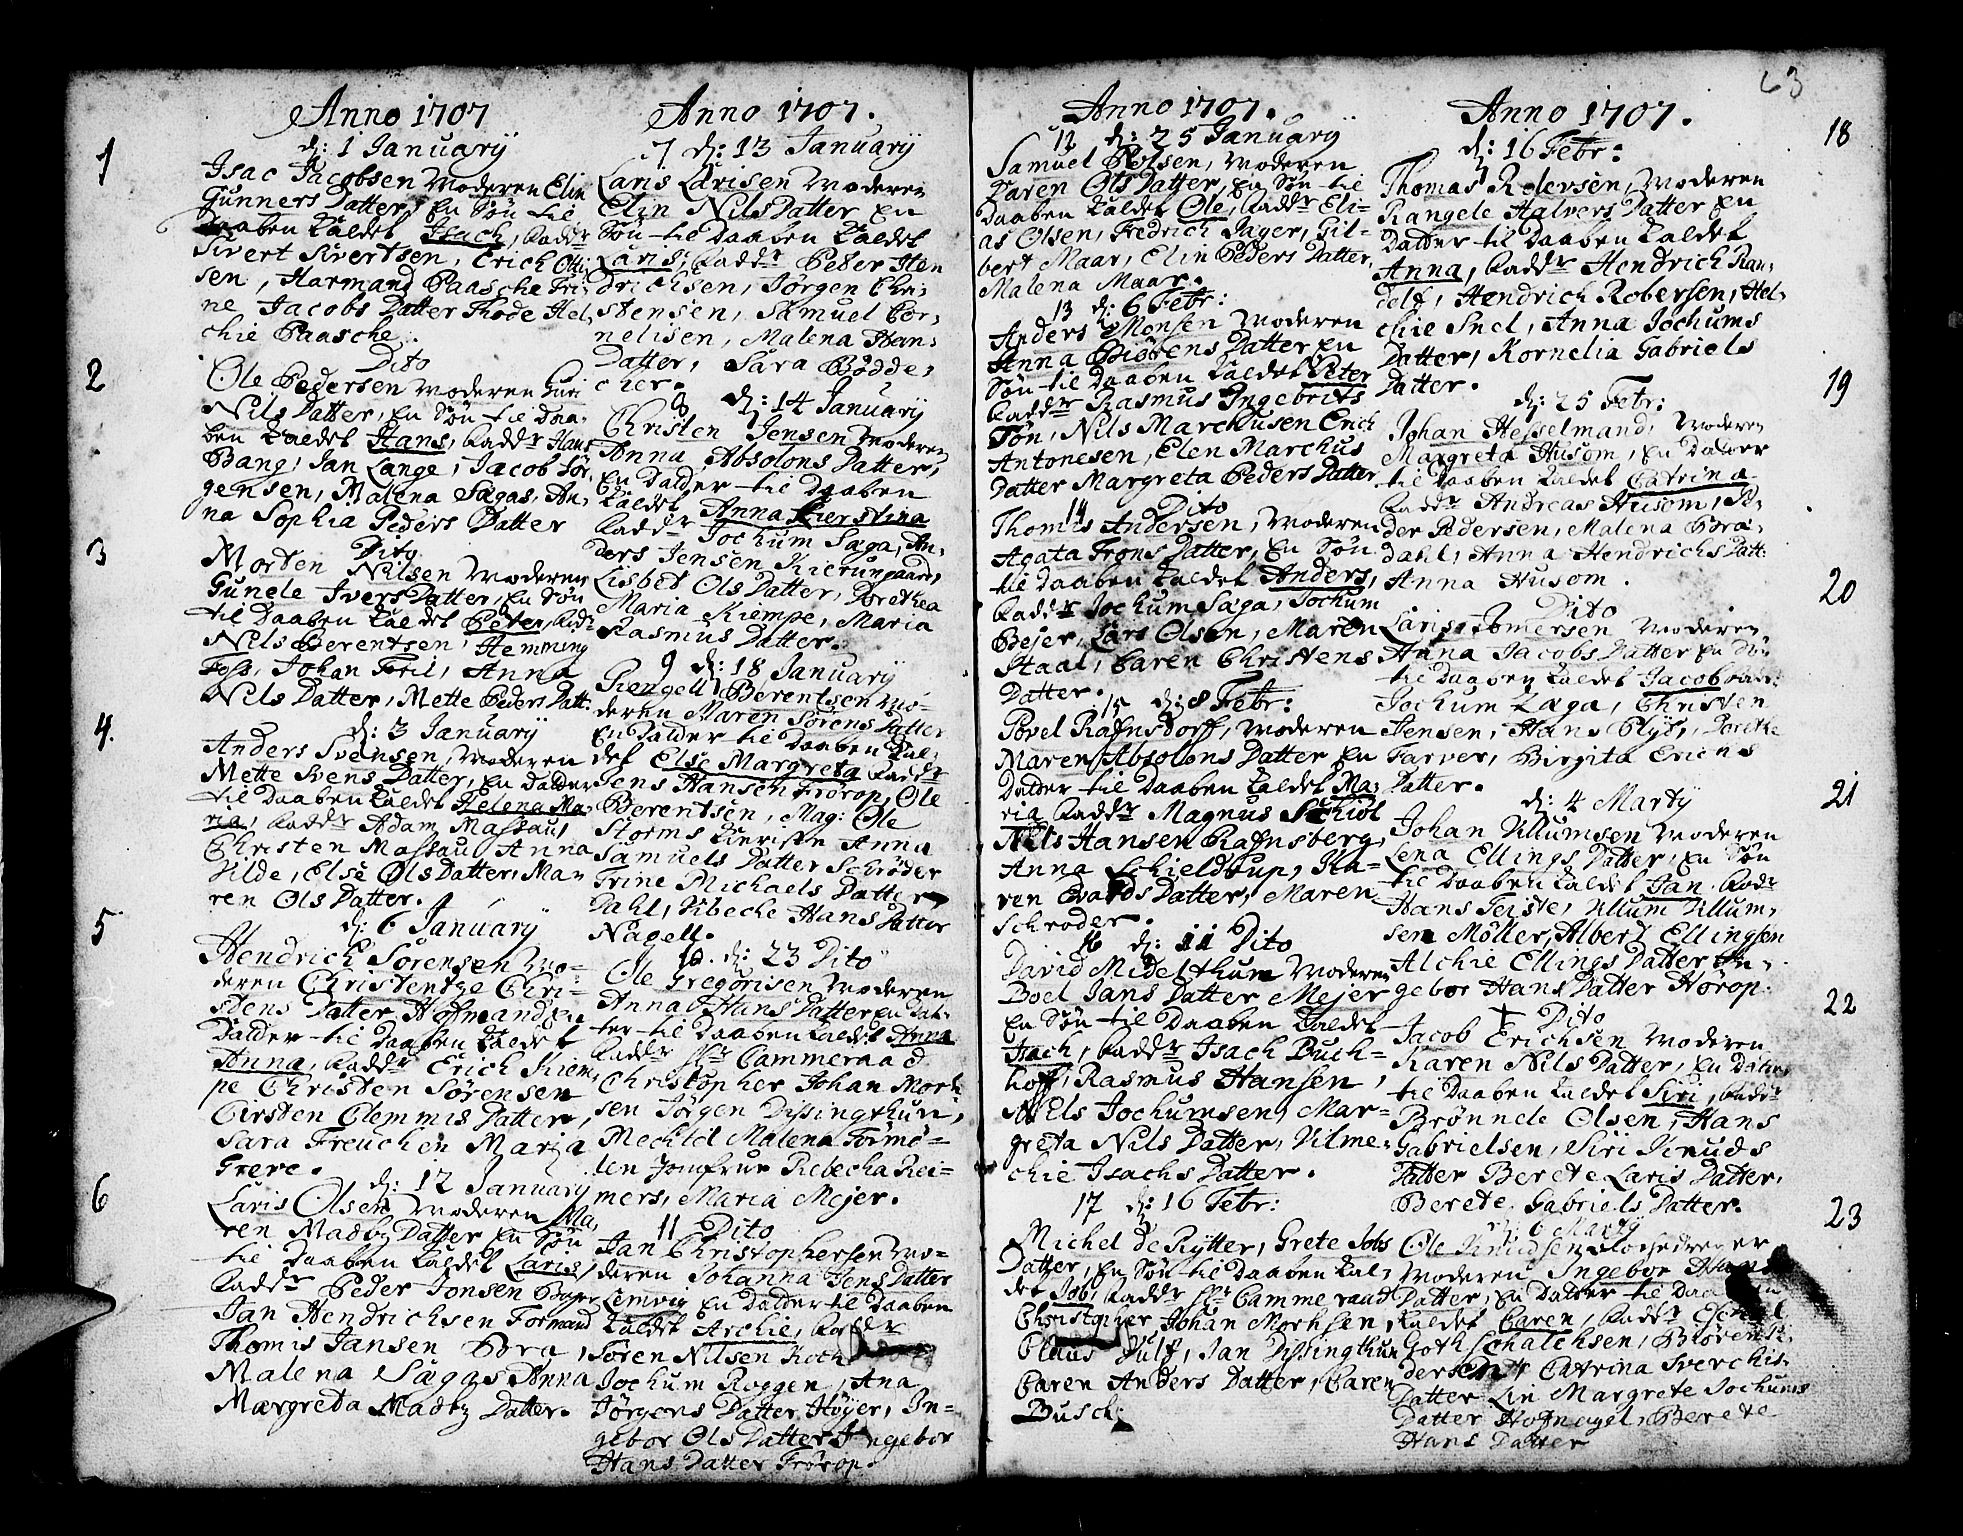 63
Anno 1707
1
d: 1 Januarÿ
Isac Jacobsen Moderen Elin
Gunners Datter, En Søn til
Daaben kaldet Isach, faddr
Sivert Sivertsen, Erich Otti
sen, Harmand Paasche Tri
ne Jacobs Datter Thode Hel,
chie Paasche.
2
Dito
Ole Pedersen Moderen Guri
Nils Datter, En Søn til daa,
ben kaldet Hans, faddr Hans
Bang, Jan Lange, Jacob Jør,
gensen, Malena Sagas, An,
na Sophia Peders Datter
3
Dito
Morten Nilsen Moderen
Gunele Ivers Datter, En Søn
til Daaben kaldet Peter, fadr
Nils Berentsen, Hemming
Fess, Johan Foril, Anna
Nils Datter, Mette Peders Datt:
4.
d: 3 Januarÿ
Anders Svensen, Moderen
Mette Svens Datter, En Datter
til Daaben kaldet Helena Ma
ria, faddr Adam Massau,
Christen Massau, Anna
Vilde, Else Ols Datter, Ma,
ren Ols Datter.
5
d: 6 Januarÿ
Hendrich Sørensen Mo=
deren Christentze Chri=
stens Datter Hofmand En
Datder til Daaben kaldet
Anna, faddr Erich Kiem,
pe Christen Sørensen
Cirsten Clemmis Datter,
Sara Freuchen Maria
Greve.
6
d: 12 Januarÿ
Laris Olsen Moderen Ma,
ren Madtz Datter En Søn
til Daaben kaldet Laris,
faddr Peder Jonsen Bager
Jan Hendrichsen Formand
Thomis Jansen Bra,
Malena Sagas Anna
Margreta Madtz Datter.
Anno 1707.
7 d: 13 Januarÿ
Laris Larisen Moderen
Elin Nils Datter En
Søn til Daaben kaldet
Laris: faddr Peter Hen
drichsen, Jørgen Chri,
stensen, Samuel Cor,
nelisen, Malena Han,
Datter, Sara Bødde,
cher.
8 d: 14 Januarÿ
Christen Jensen Moderen
Anna Absolons Datter,
En Datder til Daaben
kaldet Anna Kierstina
faddr Jochum Saga, An,
ders Jensen Kierungaard,
Lisbet Ols Datter, Dorethea
Maria Kiempe, Maria
Rasmus Datter.
9 d: 18 Januarÿ
Rengell Berentsen Mo=
deren Maren Sørens Datter
En Datder til Daaben kal,
det Else Margreta faddr
Jens Hansen Frørop, Ole
Berentsen, Mag: Ole
Storms Kieriste Anna
Samuels Datter Schrøder
Trine Michaels Datter
Dahl, Vibeche Hans Datter
Nagell.
10. d: 23 Dito
Ole Gregorisen Moderen
Anna Hans Datter En Dat,
ter til Daaben kaldet Anna
faddr Hr Cammeraad
Christopher Johan Morh
sen Jørgen Dissingthun,
Mechild Malena Tormø=
len Jomfrue Rebecha Rei=
mers, Maria Mejer.
11 Dito
Jan Christophersen Mo=
deren Johanna Jens Datter
Lemvig En Datder til Daaben
kaldet Archie, faddr
Søren Nilsen Koch
Jochum Roggen, Ana
Jørgens Datter Høyer, In=
gebor Ols Datter Ingebor
Hans Datter Frørop.
Anno 1707.
12 d: 25 Januarÿ
Samuel Polsen, Moderen
Karen Ols Datter, En Søn til
Daaben kaldet Ole, faddr Eli=
as Olsen, Fredrich Jager, Gil=
bert Maar, Elin Peders Datter,
Malena Maar.
13 d: 6 Febr:
Anders Monsen Moderen
Anna Biørens Datter En
Søn til Daaben kaldet Peter
faddr Rasmus Ingebrits
Søn, Nils Marchusen Erich
Antonesen, Elen Marchus
Datter Margreta Peders Datter
14 Dito
Thomis Andersen, Moderen
Agata Frons Datter, En Søn
til Daaben kaldet Anders,
faddr Jochum Saga, Jochum
Bejer, Lars Olsen, Maren
Staal, Caren Christens
Datter.
15 d: 8 Febr:
Povel Rafnsdorff, Moderen
Maren Absolons Datter En
Datder til Daaben kaldet Ma,
ria faddr Magnus Schiøt
Nils Hansen Rafnsberg,
Anna Schieldrup, Ka=
ren Datter, Maren
Schrøder.
16 d: 11 Dito
David Midelthum Moderen
Boel Jans Datter Mejer
En Søn til Daaben kaldet
Isach, faddr Isach Buch=
hoff, Rasmus Hansen,
Niels Jochumsen, Mar=
greta Nils Datter, Vilme,
chie Isachs Datter.
17 d: 16 Febr:
Michel de Rÿtter, Grete Jobs
Datter, En Søn til Daaben kal,
det Job, faddr Hr Cammeraad
Christopher Johan Morhsen,
Claus Vulf, Jan Dissingthun
Caren Anders Datter, Caren
Busch.
Anno 1707.
18
d: 16 Febr:
Thomas Rolevsen, Moderen
Rangele Halvers Datter En
Datder til Daaben kaldet
Anna, faddr Hendrich Ran,
delf, Hendrich Robersen, Hel,
chie Snel, Anna Jochums
Datter, Kornelia Gabriels
Datter.
19
d: 25 Febr:
Johan Hesselmand, Moderen
Margreta Husom, En Datder
til Daaben kaldet Catrina
faddr Andreas Husom, Pe,
der Pedersen, Malena Bra,
dahl, Anna Hendrichs Datt:
Anna Husom.
20
Dito
Laris Jomersen Moderen
Anna Jacobs Datter En Søn
til Daaben kaldet Jacob faddr:
Jochum Zaga, Christen
Jensen, Hans Plÿs, Berethe
Farver, Birgita Erichs
Datter.
21
d: 4 Martÿ
Johan Ullumsen Moderen
Lena Ellings Datter, En Søn
til Daaben kaldet Jan fadr
Hans Feiste, Ullum Ullum,
sen Møller, Albert Ellingsen
Alchie Ellings Datter In,
gebor Hans Datter Hørop.
22
Dito
Jacob Erichsen Moderen
Karen Nils Datter, En Datter
til Daaben kaldet Siri, faddr
Brønnele Olsen, Hans
Gabrielsen, Siri Knuds
Datter Berete Laris Datter,
Berete Gabriels Datter.
23
d: 6 Martÿ
Ole Knudsen Klochedreger
Moderen Ingebor Hans
Datter, En Datder til Daaben
kaldet Caren, faddr
Gotschalchsen, Biøren
dersen, Catrina Sverchis
Datter Lin Margrete Jochums
Datter Hofnagel, Berete
Hans Datter